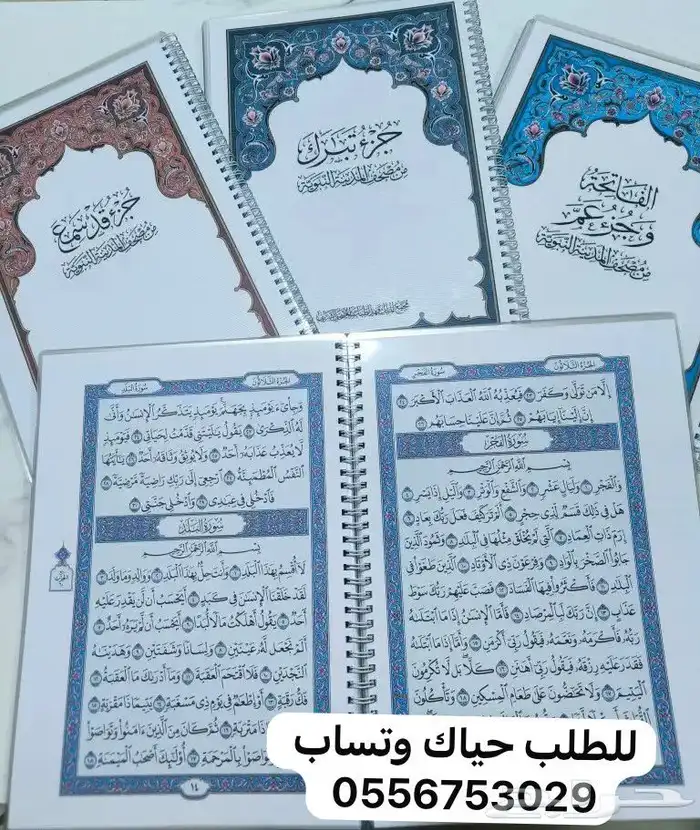 جزء قد سمع
من مصحف المدينة النبوية
جزء تبارك
من مصحف المدينة النبوية
الفاتحة
وجزء عم
من مصحف المدينة النبوية
سورة الفجر
الجزء الثلاثون
إِلَّا مَن تَوَلَّىٰ وَكَفَرَ ٢٣ فَيُعَذِّبُهُ ٱللَّهُ ٱلْعَذَابَ ٱلْأَكْبَرَ ٢٤
إِنَّ إِلَيْنَآ إِيَابَهُمْ ٢٥ ثُمَّ إِنَّ عَلَيْنَا حِسَابَهُم ٢٦
سورة الفجر
بِسْمِ ٱللَّهِ ٱلرَّحْمَٰنِ ٱلرَّحِيمِ
وَٱلْفَجْرِ ١ وَلَيَالٍ عَشْرٍ ٢ وَٱلشَّفْعِ وَٱلْوَتْرِ ٣ وَٱلَّيْلِ إِذَا يَسْرِ ٤
هَلْ فِى ذَٰلِكَ قَسَمٌ لِّذِى حِجْرٍ ٥ أَلَمْ تَرَ كَيْفَ فَعَلَ رَبُّكَ بِعَادٍ ٦
إِرَمَ ذَاتِ ٱلْعِمَادِ ٧ ٱلَّتِى لَمْ يُخْلَقْ مِثْلُهَا فِى ٱلْبِلَٰدِ ٨ وَثَمُودَ ٱلَّذِينَ
جَابُوا۟ ٱلصَّخْرَ بِٱلْوَادِ ٩ وَفِرْعَوْنَ ذِى ٱلْأَوْتَادِ ١٠ ٱلَّذِينَ طَغَوْا۟ فِى
ٱلْبِلَٰدِ ١١ فَأَكْثَرُوا۟ فِيهَا ٱلْفَسَادَ ١٢ فَصَبَّ عَلَيْهِمْ رَبُّكَ سَوْطَ
عَذَابٍ ١٣ إِنَّ رَبَّكَ لَبِٱلْمِرْصَادِ ١٤ فَأَمَّا ٱلْإِنسَٰنُ إِذَا مَا ٱبْتَلَىٰهُ
رَبُّهُۥ فَأَكْرَمَهُۥ وَنَعَّمَهُۥ فَيَقُولُ رَبِّىٓ أَكْرَمَنِ ١٥ وَأَمَّآ إِذَا مَا ٱبْتَلَىٰهُ
فَقَدَرَ عَلَيْهِ رِزْقَهُۥ فَيَقُولُ رَبِّىٓ أَهَٰنَنِ ١٦ كَلَّا بَل لَّا تُكْرِمُونَ
ٱلْيَتِيمَ ١٧ وَلَا تَحَٰٓضُّونَ عَلَىٰ طَعَامِ ٱلْمِسْكِينِ ١٨ وَتَأْكُلُونَ
سورة البلد
الجزء الثلاثون
وَجِا۟ىٓءَ يَوْمَئِذٍۭ بِجَهَنَّمَ يَوْمَئِذٍ يَتَذَكَّرُ ٱلْإِنسَٰنُ وَأَنَّىٰ
لَهُ ٱلذِّكْرَىٰ ٢٣ يَقُولُ يَٰلَيْتَنِى قَدَّمْتُ لِحَيَاتِى ٢٤ فَيَوْمَئِذٍ
لَّا يُعَذِّبُ عَذَابَهُۥٓ أَحَدٌ ٢٥ وَلَا يُوثِقُ وَثَاقَهُۥٓ أَحَدٌ ٢٦ يَٰٓأَيَّتُهَا
ٱلنَّفْسُ ٱلْمُطْمَئِنَّةُ ٢٧ ٱرْجِعِىٓ إِلَىٰ رَبِّكِ رَاضِيَةً مَّرْضِيَّةً ٢٨
فَٱدْخُلِى فِى عِبَٰدِى ٢٩ وَٱدْخُلِى جَنَّتِى ٣٠
سورة البلد
بِسْمِ ٱللَّهِ ٱلرَّحْمَٰنِ ٱلرَّحِيمِ
لَآ أُقْسِمُ بِهَٰذَا ٱلْبَلَدِ ١ وَأَنتَ حِلٌّۢ بِهَٰذَا ٱلْبَلَدِ ٢ وَوَالِدٍ وَمَا وَلَدَ ٣
لَقَدْ خَلَقْنَا ٱلْإِنسَٰنَ فِى كَبَدٍ ٤ أَيَحْسَبُ أَن لَّن يَقْدِرَ عَلَيْهِ
أَحَدٌ ٥ يَقُولُ أَهْلَكْتُ مَالًا لُّبَدًا ٦ أَيَحْسَبُ أَن لَّمْ يَرَهُۥٓ أَحَدٌ ٧
أَلَمْ نَجْعَل لَّهُۥ عَيْنَيْنِ ٨ وَلِسَانًا وَشَفَتَيْنِ ٩ وَهَدَيْنَٰهُ
ٱلنَّجْدَيْنِ ١٠ فَلَا ٱقْتَحَمَ ٱلْعَقَبَةَ ١١ وَمَآ أَدْرَىٰكَ مَا ٱلْعَقَبَةُ ١٢
فَكُّ رَقَبَةٍ ١٣ أَوْ إِطْعَٰمٌ فِى يَوْمٍ ذِى مَسْغَبَةٍ ١٤ يَتِيمًا ذَا مَقْرَبَةٍ ١٥
ذَا مَتْرَبَةٍ ١٦ ثُمَّ كَانَ مِنَ ٱلَّذِينَ ءَامَنُوا۟ وَتَوَاصَوْا۟
وَتَوَاصَوْا۟ بِٱلْمَرْحَمَةِ ١٧ أُو۟لَٰٓئِكَ أَصْحَٰبُ ٱلْمَيْمَنَةِ ١٨
١٤
للطلب حياك وتساب
0556753029
حراج